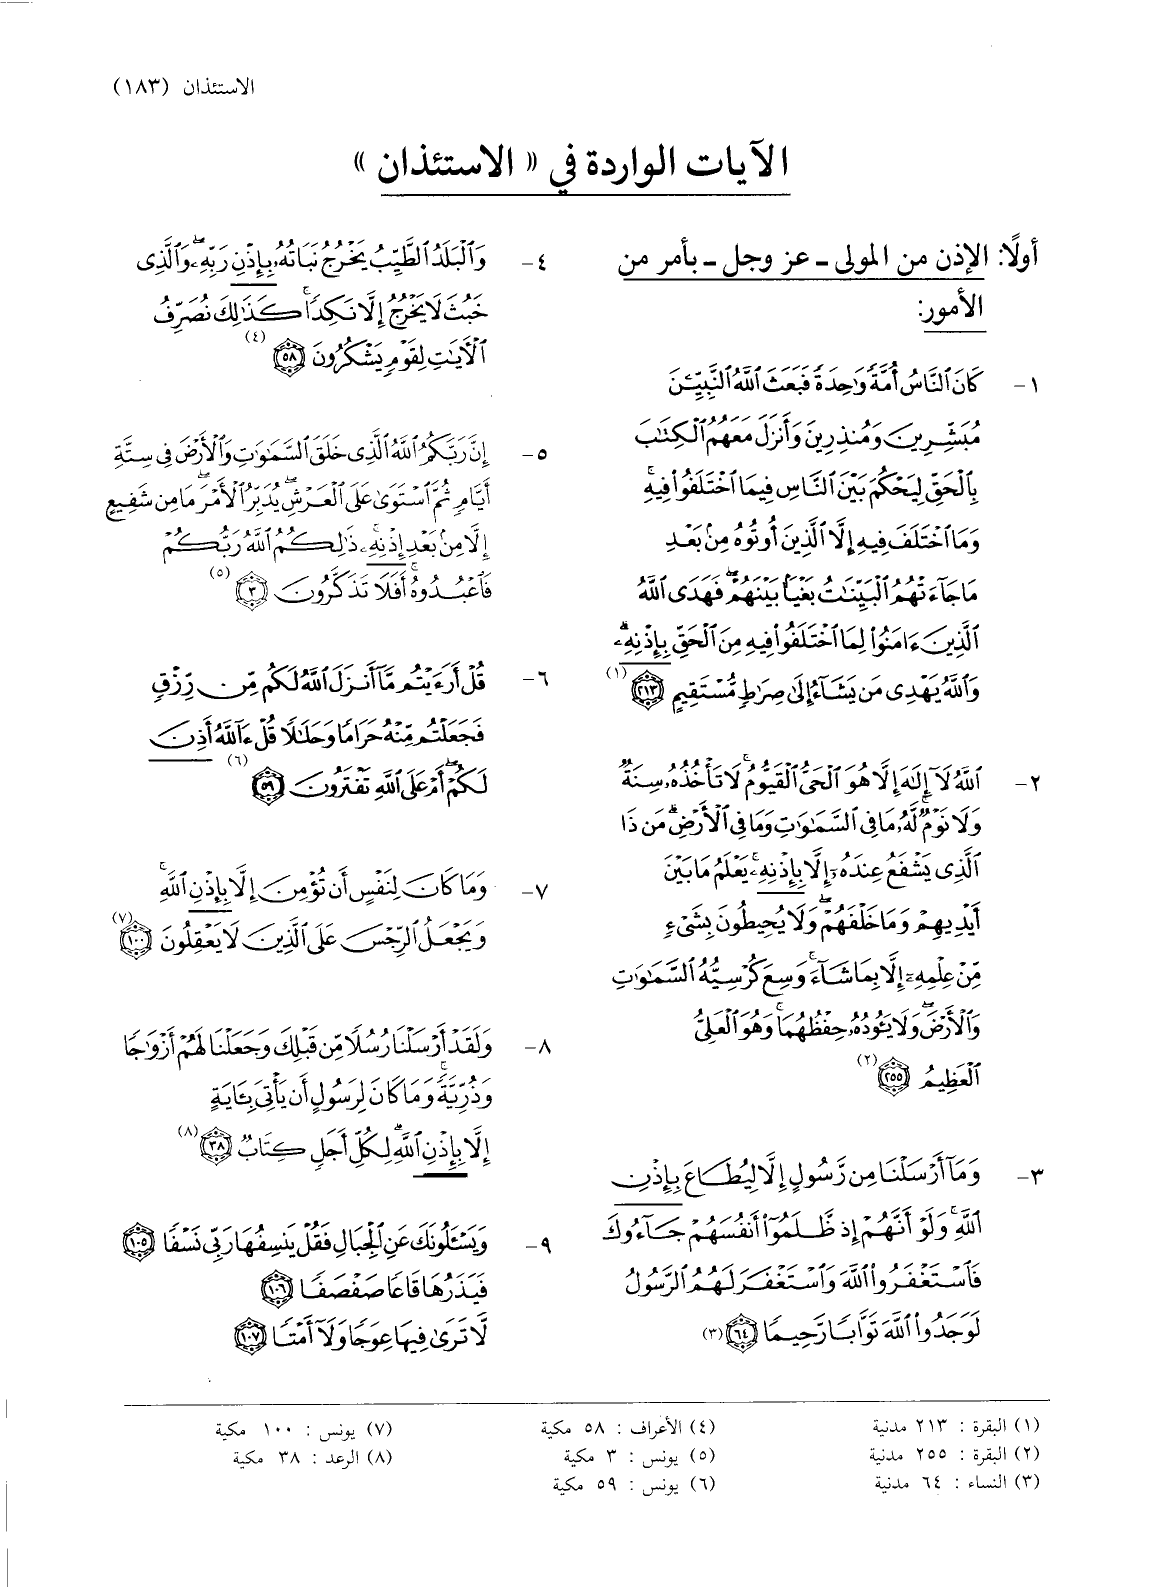 الاستئذان (١٨٣)
الآيات الواردة في « الاستئذان »
أولًا: الإذن من المولى ـ عز وجل ـ بأمر من
الأمور:
١- كَانَ ٱلنَّاسُ أُمَّةً وَٰحِدَةً فَبَعَثَ ٱللَّهُ ٱلنَّبِيِّـۧنَ
مُبَشِّرِينَ وَمُنذِرِينَ وَأَنزَلَ مَعَهُمُ ٱلْكِتَٰبَ
بِٱلْحَقِّ لِيَحْكُمَ بَيْنَ ٱلنَّاسِ فِيمَا ٱخْتَلَفُوا۟ فِيهِ ۚ
وَمَا ٱخْتَلَفَ فِيهِ إِلَّا ٱلَّذِينَ أُوتُوهُ مِنۢ بَعْدِ
مَا جَآءَتْهُمُ ٱلْبَيِّنَٰتُ بَغْيًۢا بَيْنَهُمْ ۖ فَهَدَى ٱللَّهُ
ٱلَّذِينَ ءَامَنُوا۟ لِمَا ٱخْتَلَفُوا۟ فِيهِ مِنَ ٱلْحَقِّ بِإِذْنِهِۦ ۗ
وَٱللَّهُ يَهْدِى مَن يَشَآءُ إِلَىٰ صِرَٰطٍ مُّسْتَقِيمٍ ﴿٢١٣﴾ (١)
٢- ٱللَّهُ لَآ إِلَٰهَ إِلَّا هُوَ ٱلْحَىُّ ٱلْقَيُّومُ ۚ لَا تَأْخُذُهُۥ سِنَةٌ
وَلَا نَوْمٌ ۚ لَّهُۥ مَا فِى ٱلسَّمَٰوَٰتِ وَمَا فِى ٱلْأَرْضِ ۗ مَن ذَا
ٱلَّذِى يَشْفَعُ عِندَهُۥٓ إِلَّا بِإِذْنِهِۦ ۚ يَعْلَمُ مَا بَيْنَ
أَيْدِيهِمْ وَمَا خَلْفَهُمْ ۖ وَلَا يُحِيطُونَ بِشَىْءٍ
مِّنْ عِلْمِهِۦٓ إِلَّا بِمَا شَآءَ ۚ وَسِعَ كُرْسِيُّهُ ٱلسَّمَٰوَٰتِ
وَٱلْأَرْضَ ۖ وَلَا يَـُٔودُهُۥ حِفْظُهُمَا ۚ وَهُوَ ٱلْعَلِىُّ
ٱلْعَظِيمُ ﴿٢٥٥﴾ (٢)
٣- وَمَآ أَرْسَلْنَا مِن رَّسُولٍ إِلَّا لِيُطَاعَ بِإِذْنِ
ٱللَّهِ ۚ وَلَوْ أَنَّهُمْ إِذ ظَّلَمُوٓا۟ أَنفُسَهُمْ جَآءُوكَ
فَٱسْتَغْفَرُوا۟ ٱللَّهَ وَٱسْتَغْفَرَ لَهُمُ ٱلرَّسُولُ
لَوَجَدُوا۟ ٱللَّهَ تَوَّابًا رَّحِيمًا ﴿٦٤﴾ (٣)
٤- وَٱلْبَلَدُ ٱلطَّيِّبُ يَخْرُجُ نَبَاتُهُۥ بِإِذْنِ رَبِّهِۦ ۖ وَٱلَّذِى
خَبُثَ لَا يَخْرُجُ إِلَّا نَكِدًا ۚ كَذَٰلِكَ نُصَرِّفُ
ٱلْأَيَٰتِ لِقَوْمٍ يَشْكُرُونَ ﴿٥٨﴾ (٤)
٥- إِنَّ رَبَّكُمُ ٱللَّهُ ٱلَّذِى خَلَقَ ٱلسَّمَٰوَٰتِ وَٱلْأَرْضَ فِى سِتَّةِ
أَيَّامٍ ثُمَّ ٱسْتَوَىٰ عَلَى ٱلْعَرْشِ ۖ يُدَبِّرُ ٱلْأَمْرَ ۖ مَا مِن شَفِيعٍ
إِلَّا مِنۢ بَعْدِ إِذْنِهِۦ ۚ ذَٰلِكُمُ ٱللَّهُ رَبُّكُمْ
فَٱعْبُدُوهُ ۚ أَفَلَا تَذَكَّرُونَ ﴿٣﴾ (٥)
٦- قُلْ أَرَءَيْتُم مَّآ أَنزَلَ ٱللَّهُ لَكُم مِّن رِّزْقٍ
فَجَعَلْتُم مِّنْهُ حَرَامًا وَحَلَٰلًا قُلْ ءَآللَّهُ أَذِنَ
لَكُمْ ۖ أَمْ عَلَى ٱللَّهِ تَفْتَرُونَ ﴿٥٩﴾ (٦)
٧- وَمَا كَانَ لِنَفْسٍ أَن تُؤْمِنَ إِلَّا بِإِذْنِ ٱللَّهِ ۚ
وَيَجْعَلُ ٱلرِّجْسَ عَلَى ٱلَّذِينَ لَا يَعْقِلُونَ ﴿١٠٠﴾ (٧)
٨- وَلَقَدْ أَرْسَلْنَا رُسُلًا مِّن قَبْلِكَ وَجَعَلْنَا لَهُمْ أَزْوَٰجًا
وَذُرِّيَّةً ۚ وَمَا كَانَ لِرَسُولٍ أَن يَأْتِىَ بِـَٔايَةٍ
إِلَّا بِإِذْنِ ٱللَّهِ ۗ لِكُلِّ أَجَلٍ كِتَابٌ ﴿٣٨﴾ (٨)
٩- وَيَسْـَٔلُونَكَ عَنِ ٱلْجِبَالِ فَقُلْ يَنسِفُهَا رَبِّى نَسْفًا ﴿١٠٥﴾
فَيَذَرُهَا قَاعًا صَفْصَفًا ﴿١٠٦﴾
لَّا تَرَىٰ فِيهَا عِوَجًا وَلَآ أَمْتًا ﴿١٠٧﴾
(١) البقرة : ٢١٣ مدنية
(٢) البقرة : ٢٥٥ مدنية
(٣) النساء : ٦٤ مدنية
(٤) الأعراف : ٥٨ مكية
(٥) يونس : ٣ مكية
(٦) يونس : ٥٩ مكية
(٧) يونس : ١٠٠ مكية
(٨) الرعد : ٣٨ مكية